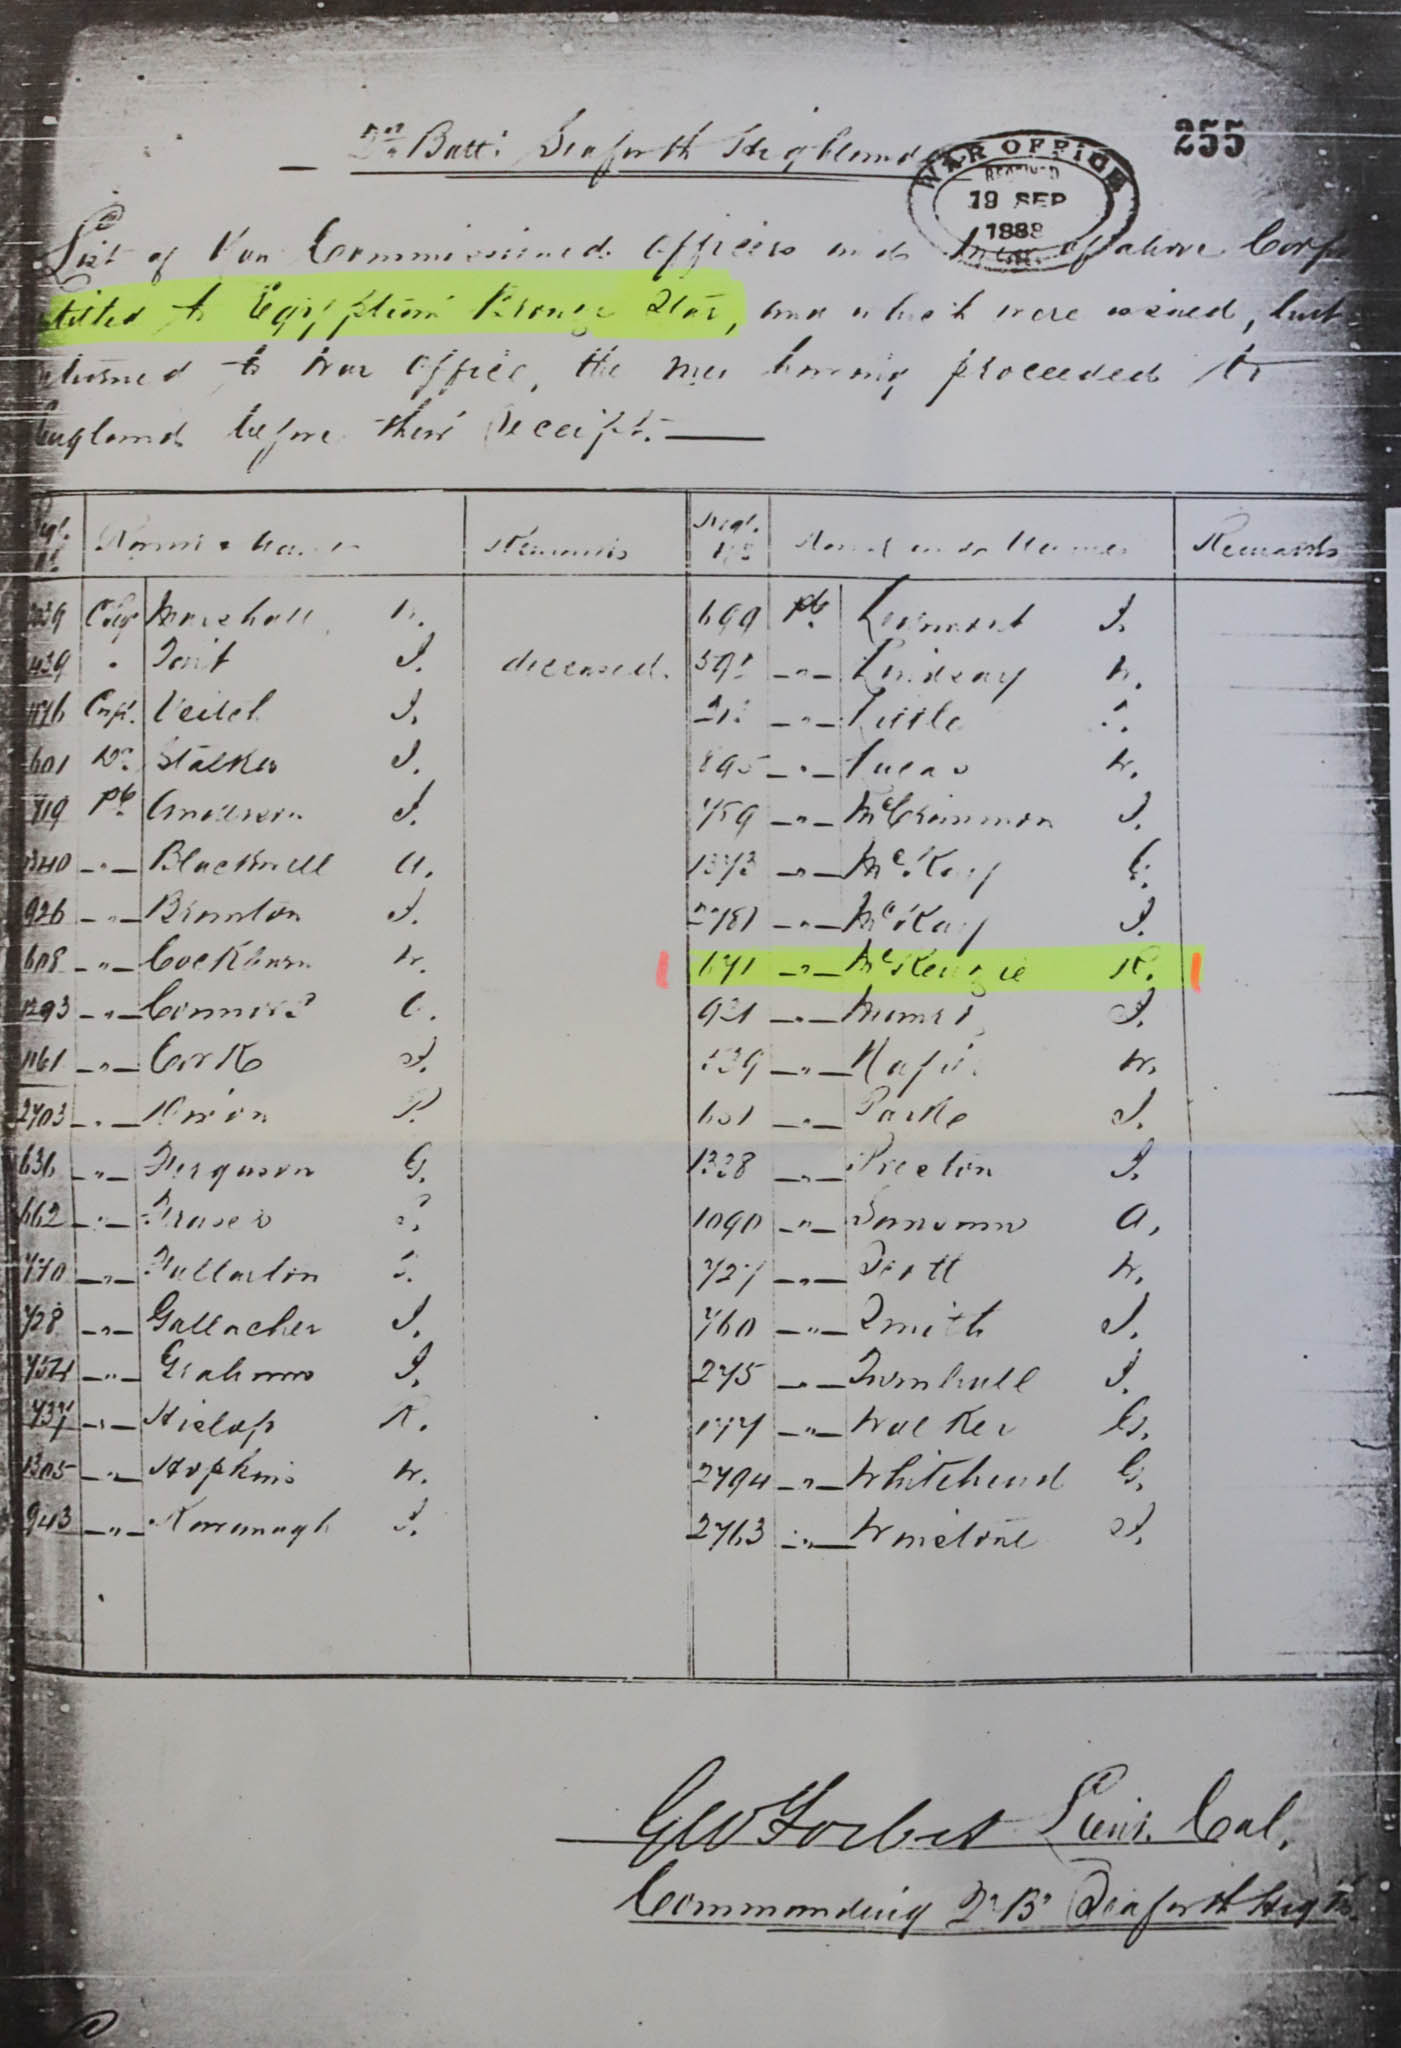 255
2nd Batt: Seaforth Highland
WAR OFFICE
RECEIVED
19 SEP
1888
List of Non Commissioned Officers and Men of above Corp
titled to Egyptian Bronze Star, and which were issued, but
turned to War Office, the men having proceeded to
England before their receipt.
Rank & Name Remarks Regl. No Rank and Names Remarks
Marshall W. 699 Pte Learmont J.
439 " Tait J. deceased. " Lindsay W.
Corpl. Veitch J. " Little
601 Dr. Stalker J. " Lucas W.
719 Pte Anderson J. 759 " McCrimmon J.
1340 " Blackwell A. 1373 " McKay G.
926 " Brunton J. 2781 " McKay J.
608 " Cockburn W. 671 " McKenzie R.
1293 " Connors C. 921 " J.
1161 " Cork J. " W.
2703 " P. 651 " Parke J.
636 " Ferguson G. 1328 " Preston J.
662 " Fraser 1090 " A.
770 " Fullarton 727 " Scott W.
728 " Gallacher J. 760 " Smith J.
754 " Graham J. 275 " Turnbull J.
" Hislop R. 177 " Walker G.
1305 " Hopkins W. 2794 " Whitehead G.
943 " Kavanagh J. 2763 " J.
Geo Forbes Lieut. Col.
Commanding 2d Bn Seaforth Highrs.